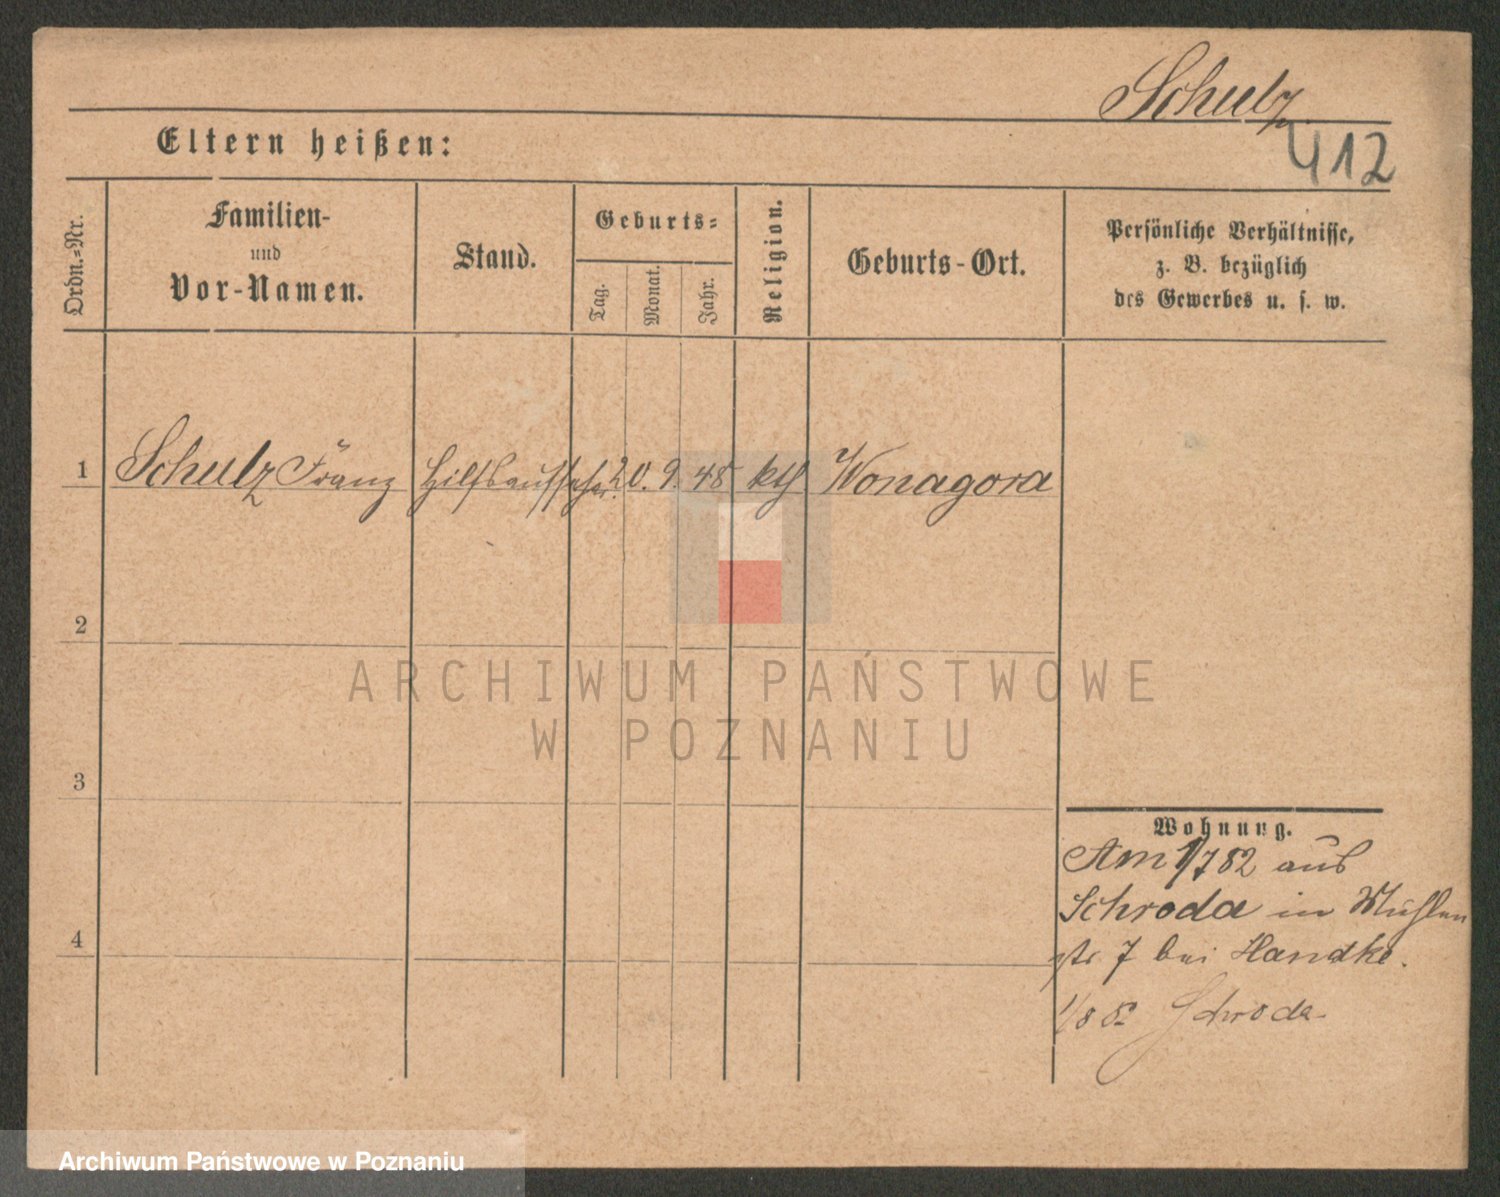 Schulz
412
Eltern heißen:
Ordn.=Nr.
Familien-
und
Vor-Namen.
Stand.
Geburts=
Tag.
Monat.
Jahr.
Religion.
Geburts-Ort.
Persönliche Verhältnisse,
z. B. bezüglich
des Gewerbes u. s. w.
1 Schulz Franz Hilfsaufseher 20. 9. 48 kth Wonagora
2
3
4
Wohnung.
Am 1/7 82 aus
Schroda in Mühlen
str 7 bei Handke.
1/8 82 Schroda
ARCHIWUM PAŃSTWOWE
W POZNANIU
Archiwum Państwowe w Poznaniu